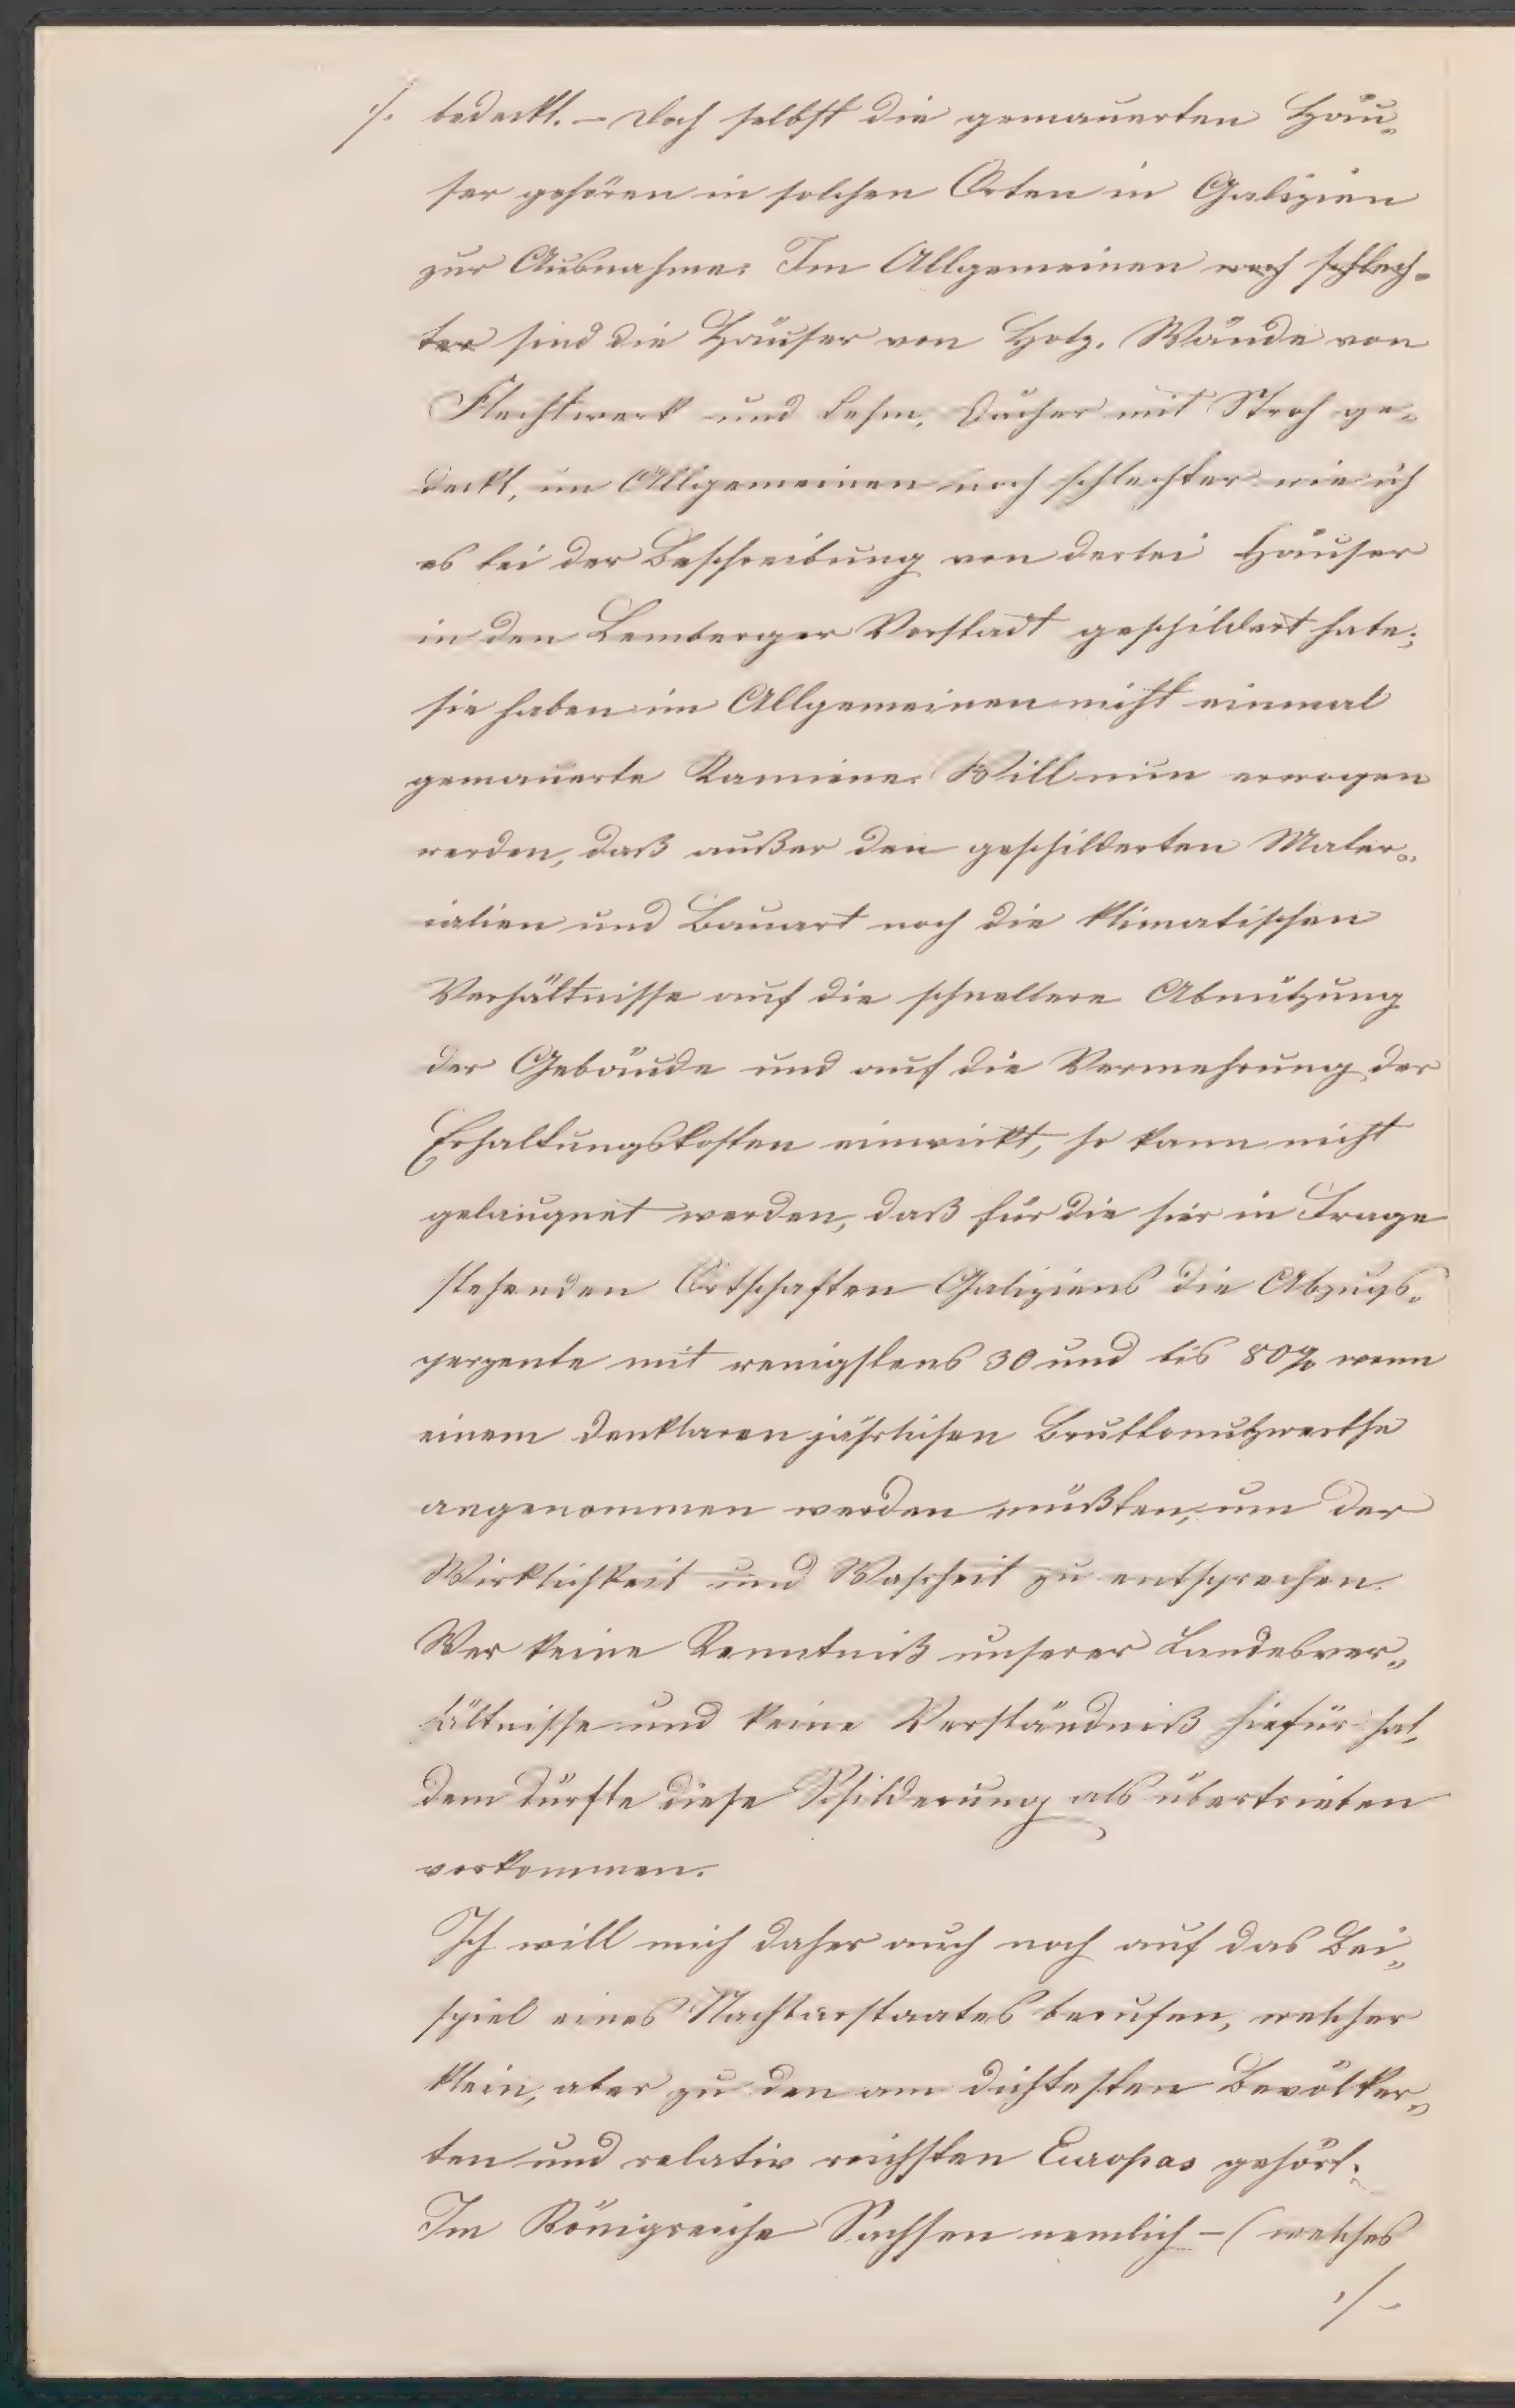 ./. bedeckt. – Doch selbst die gemauerten Häu„
ser gehören in solchen Orten in Galizien
zur Ausnahme. Im Allgemeinen noch schlech„
ter sind die Häuser von Holz. Wände von
Flechtwerk und Lehm, Dächer mit Stroh ge„
deckt, im Allgemeinen noch schlechter wie ich
es bei der Beschreibung von derlei Häuser
in den Lemberger Vorstadt geschildert habe;
sie haben im Allgemeinen nicht einmal
gemauerte Kamine. Will nun erwogen
werden, daß außer den geschilderten Mater„
ialien und Bauart noch die klimatischen
Verhältnisse auf die schnellere Abnützung
der Gebäude und auf die Vermehrung der
Erhaltungskosten einwirkt, so kann nicht
geläugnet werden, daß für die hier in Frage
stehenden Ortschaften Galiziens die Abzugs„
perzente mit wenigstens 30 und bis 80% wenn
einem denkbaren jährlichen Bruttonutzwerthe
angenommen werden müßten, um der
Wirklichkeit und Wahrheit zu entsprechen.
Wer keine Kenntniß unserer Landesver„
hältnisse und keine Verständniß hiefür hat,
dem dürfte diese Schilderung als übertrieben
vorkommen.
Ich will mich daher auch noch auf das Bei„
spiel eines Nachbarstaates berufen, welcher
klein, aber zu den am dichtesten Bevölker„
ten und relativ reichsten Europas gehört.
Im Königreiche Sachsen nemlich – (welches
./.